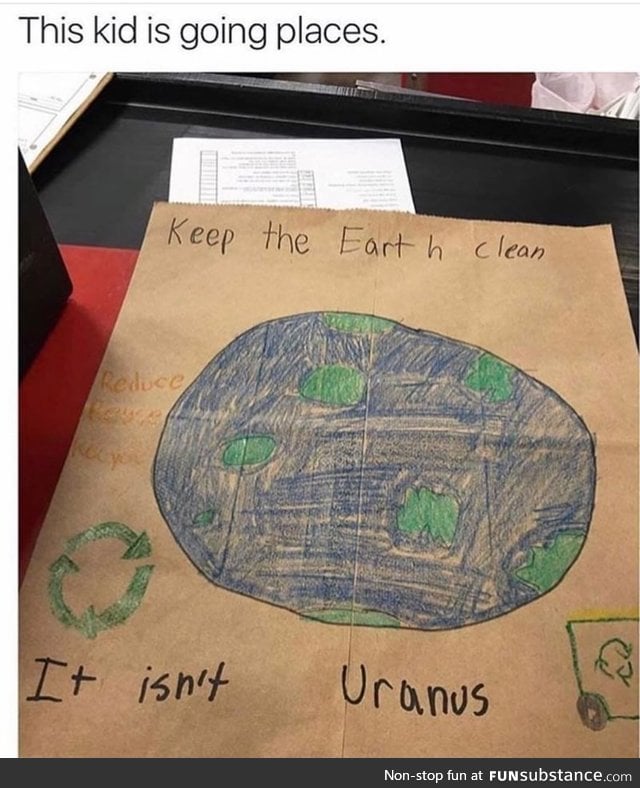 This kid is going places.
Keep the Earth clean
Reduce
Reuse
Recycle
It isn't Uranus
Non-stop fun at FUNsubstance.com